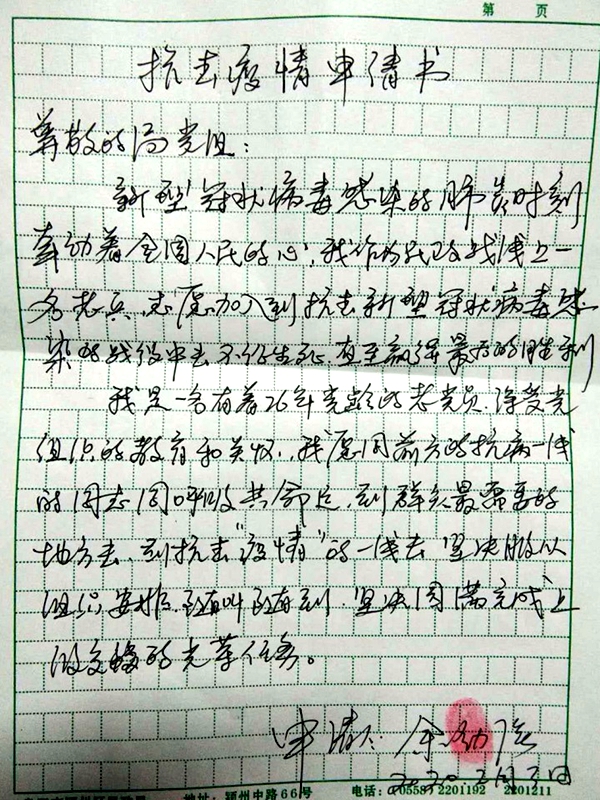 第 页
抗击疫情申请书
尊敬的局党组:
新型冠状病毒感染的肺炎时刻
牵动着全国人民的心,我作为民政战线上一
名老兵,志愿加入到抗击新型冠状病毒感
染的战役中去不论生死,直至赢得最后的胜利
我是一名有着26年党龄的老党员,深受党
组织的教育和关怀,我愿同前方的抗病一线
的同志同呼吸共命运,到群众最需要的
地方去,到抗击"疫情"的一线去坚决服从
组织安排,随叫随到,坚决圆满完成上
级交办的光荣任务。
申请人:余
2020.2月3日
地址:颍州中路66号 电话:(0558) 2201192 2201211